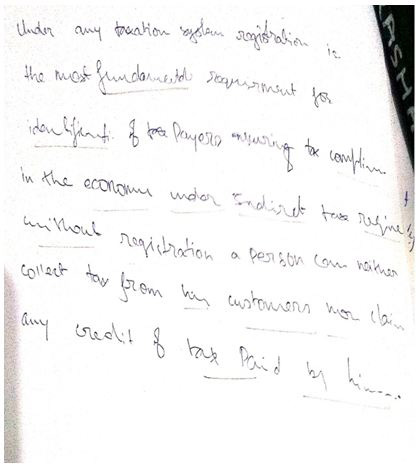 Under any taxation system registration is
the most fundamental requirment for
identificati. of tax Payers ensuring tax complian
in the economu under Indiret taxe regine &
without registration a person can neither
collect tax from his customers nor claim
any credit of tax Paid by him....
ASH